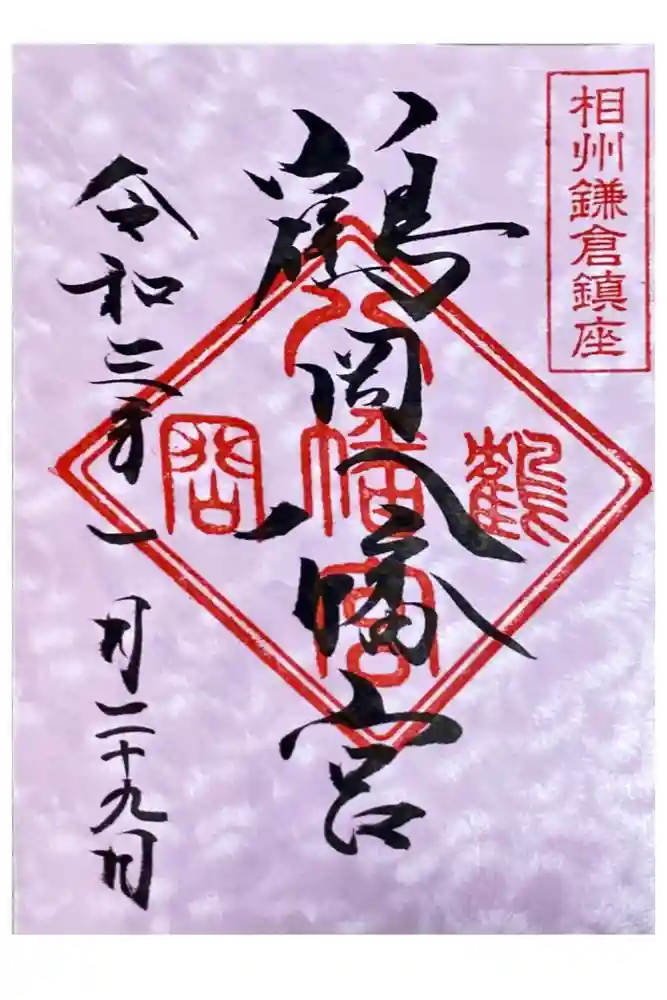 相州鎌倉鎮座
鶴岡八幡宮
鶴
八幡宮
岡
令和三年一月二十九日